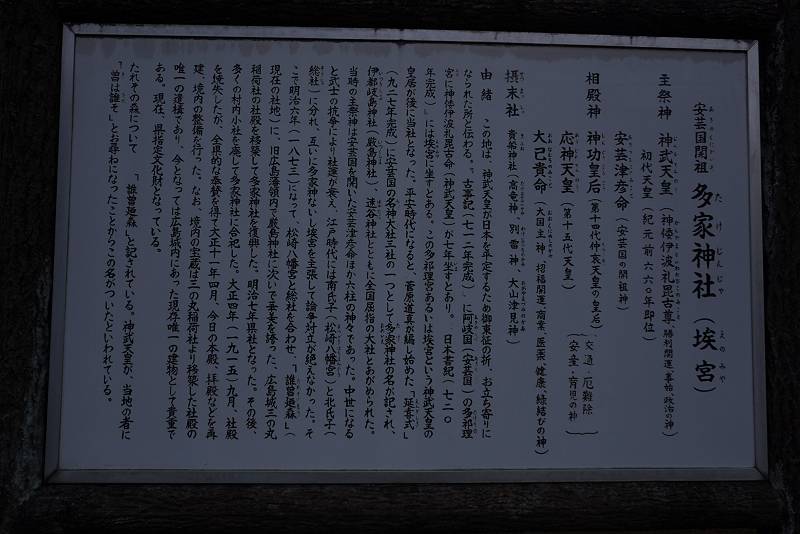 安芸国開祖 多家神社（埃宮）
主祭神 神武天皇（神倭伊波礼毘古尊 勝利開運、事始、政治の神）
初代天皇（紀元前六六〇年即位）
安芸津彦命（安芸国の開祖神）
相殿神 神功皇后（第十四代仲哀天皇の皇后）
応神天皇（第十五代天皇）
（交通・厄難除 安産・育児の神）
大己貴命（大国主神、招福開運、商業、医薬、健康、縁結びの神）
摂末社 貴船神社（高竜神、別雷神、大山津見神）
由緒 この地は、神武天皇が日本を平定するため御東征の折、お立ち寄りに
なられた所と伝わる。『古事記（七一二年完成）』に阿岐国（安芸国）の多祁理
宮に神倭伊波礼毘古命（神武天皇）が七年坐すとあり。『日本書紀（七二〇
年完成）』には埃宮に坐すとある。この多祁理宮あるいは埃宮という神武天皇の
皇居が後に当社となった。平安時代になると、菅原道真が編し始めた『延喜式』
（九二七年完成）に安芸国の名神大社三社の一つとして多家神社の名が記され、
伊都岐島神社（厳島神社）、速谷神社とともに全国屈指の大社とあがめられた。
当時の主祭神は安芸国を開いた安芸津彦命ほか六柱の神々であった。中世になる
と武士の抗争により社運が衰え、江戸時代には南氏子（松崎八幡宮）と北氏子（
総社）に分れ、互いに多家神社ないし埃宮を主張して論争対立が絶えなかった。そ
こで明治六年（一八七三）になって、松崎八幡宮と総社を合わせ、「誰曽廼森」（
現在の社地）に、旧広島藩領内で厳島神社に次いで荘美を誇った、広島城三の丸
稲荷社の社殿を移築して多家神社を復興した。明治七年県社となった。その後、
多くの村内小社を廃して多家神社に合祀した。大正四年（一九一五）九月、社殿
を焼失したが、全県的な奉賛を得て大正十一年四月、今日の本殿、拝殿などを再
建、境内の整備を行った。なお、境内の宝蔵は三の丸稲荷社より移築した社殿の
唯一の遺構であり、今となっては広島城内にあった現存唯一の建物として貴重で
ある。現在、県指定文化財となっている。
たれその森について 「誰曽廼森」と記されている。神武天皇が、当地の者に
「曽は誰そ」とお尋ねになったことからこの名がついたといわれている。